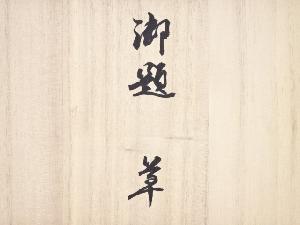 御題 草